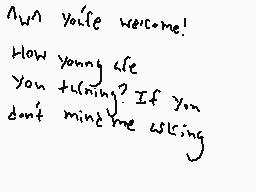 ^w^ you're welcome!
How young are
you turning? If you
don't mind me asking